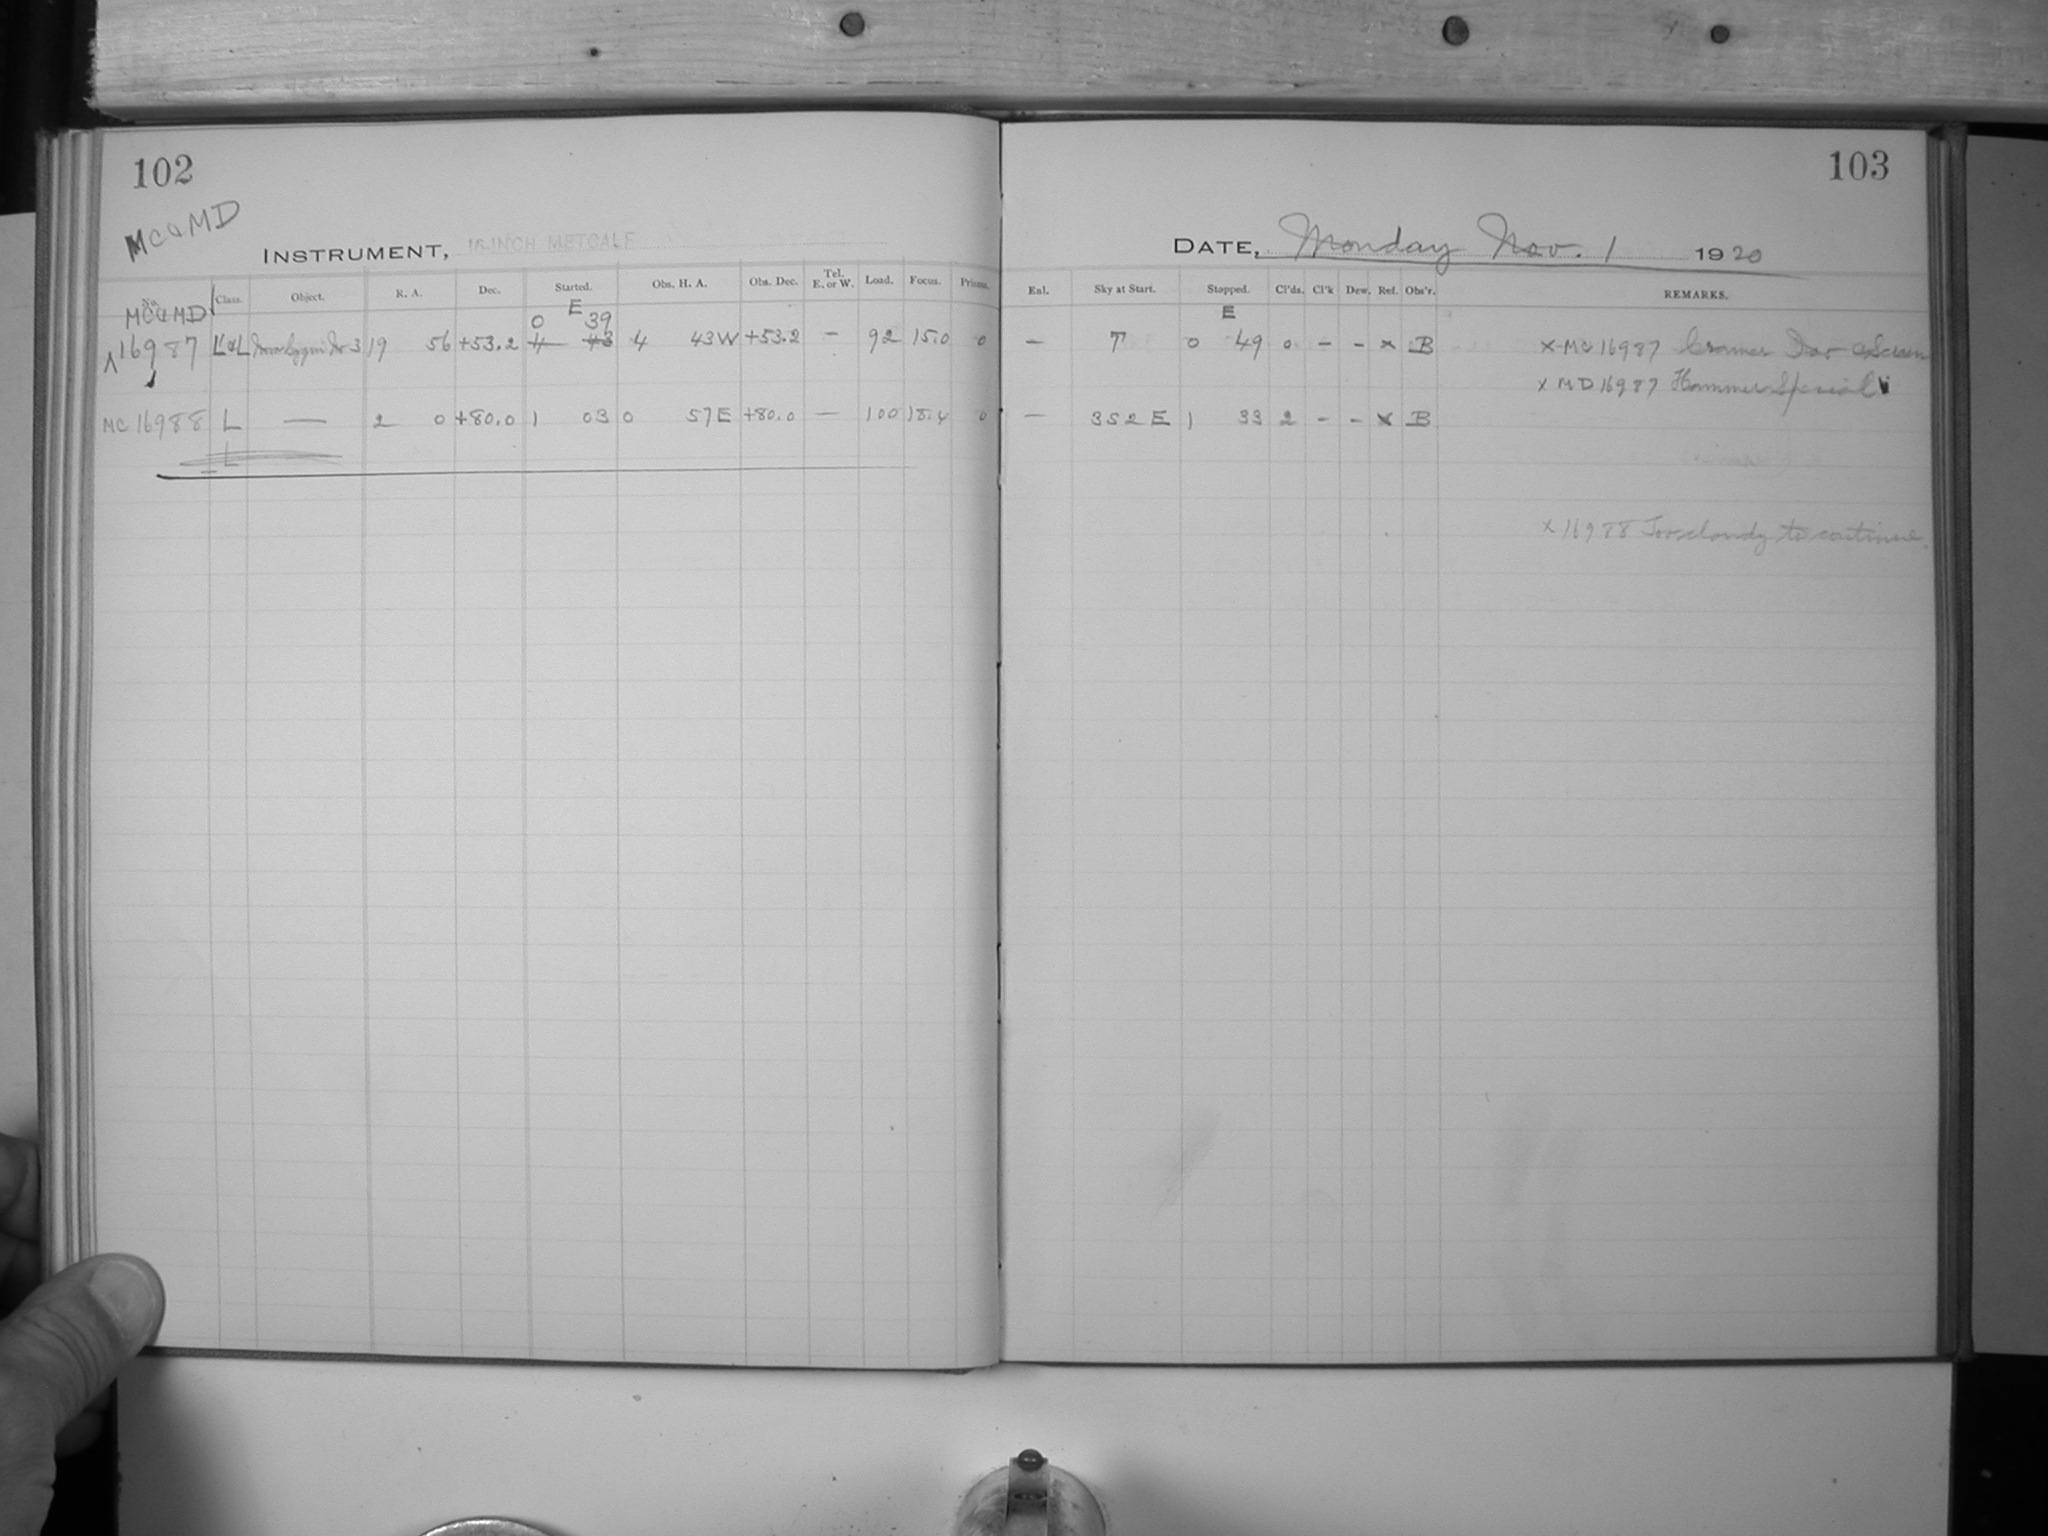 102
MC & MD
INSTRUMENT, 16-INCH METCALF
No. Class. Object. R. A. Dec. Started. Obs. H. A. Obs. Dec. Tel. E. or W. Load. Focus. Prisms.
MC & MD E
0 39
16987 L & L Nova Cygni No 3 19 56 +53.2 4 43 4 43 W +53.2 — 92 15.0 0
MC 16988 L — 2 0 +80.0 1 03 0 57 E +80.0 — 100 15.4 0
L
103
DATE, Monday Nov. 1 1920
Eal. Sky at Start. Stopped. Cl'ds. Cl'k Dew. Ref. Obs'r. REMARKS.
E
— T 0 49 0 - - x B x MC 16987 Cramer Screen
x MD 16987 Hammer Special
— 352 E 1 33 2 - - x B
x 16988 Too cloudy to continue.